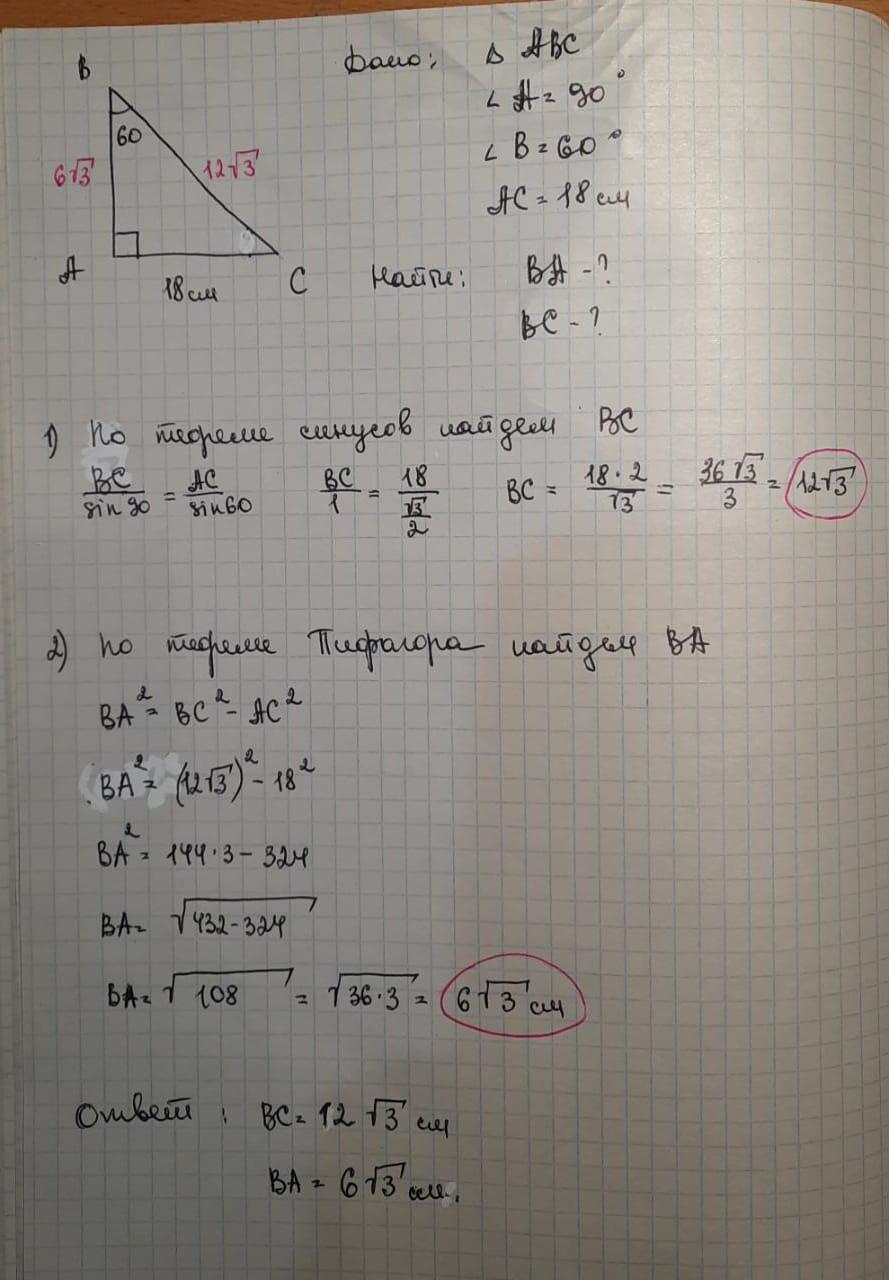 B
60
6√3
12√3
A
18 см
C
Дано: Δ ABC
∠ A = 90°
∠ B = 60°
AC = 18 см
Найти: BA - ?
BC - ?
1) По теореме синусов найдем BC
BC/sin 90 = AC/sin 60 BC/1 = 18/(√3/2) BC = 18 · 2/√3 = 36√3/3 = 12√3
2) По теореме Пифагора найдем BA
BA² = BC² - AC²
BA² = (12√3)² - 18²
BA² = 144 · 3 - 324
BA = √432 - 324
BA = √108 = √36 · 3 = 6√3 см
Ответ: BC = 12√3 см
BA = 6√3 см.